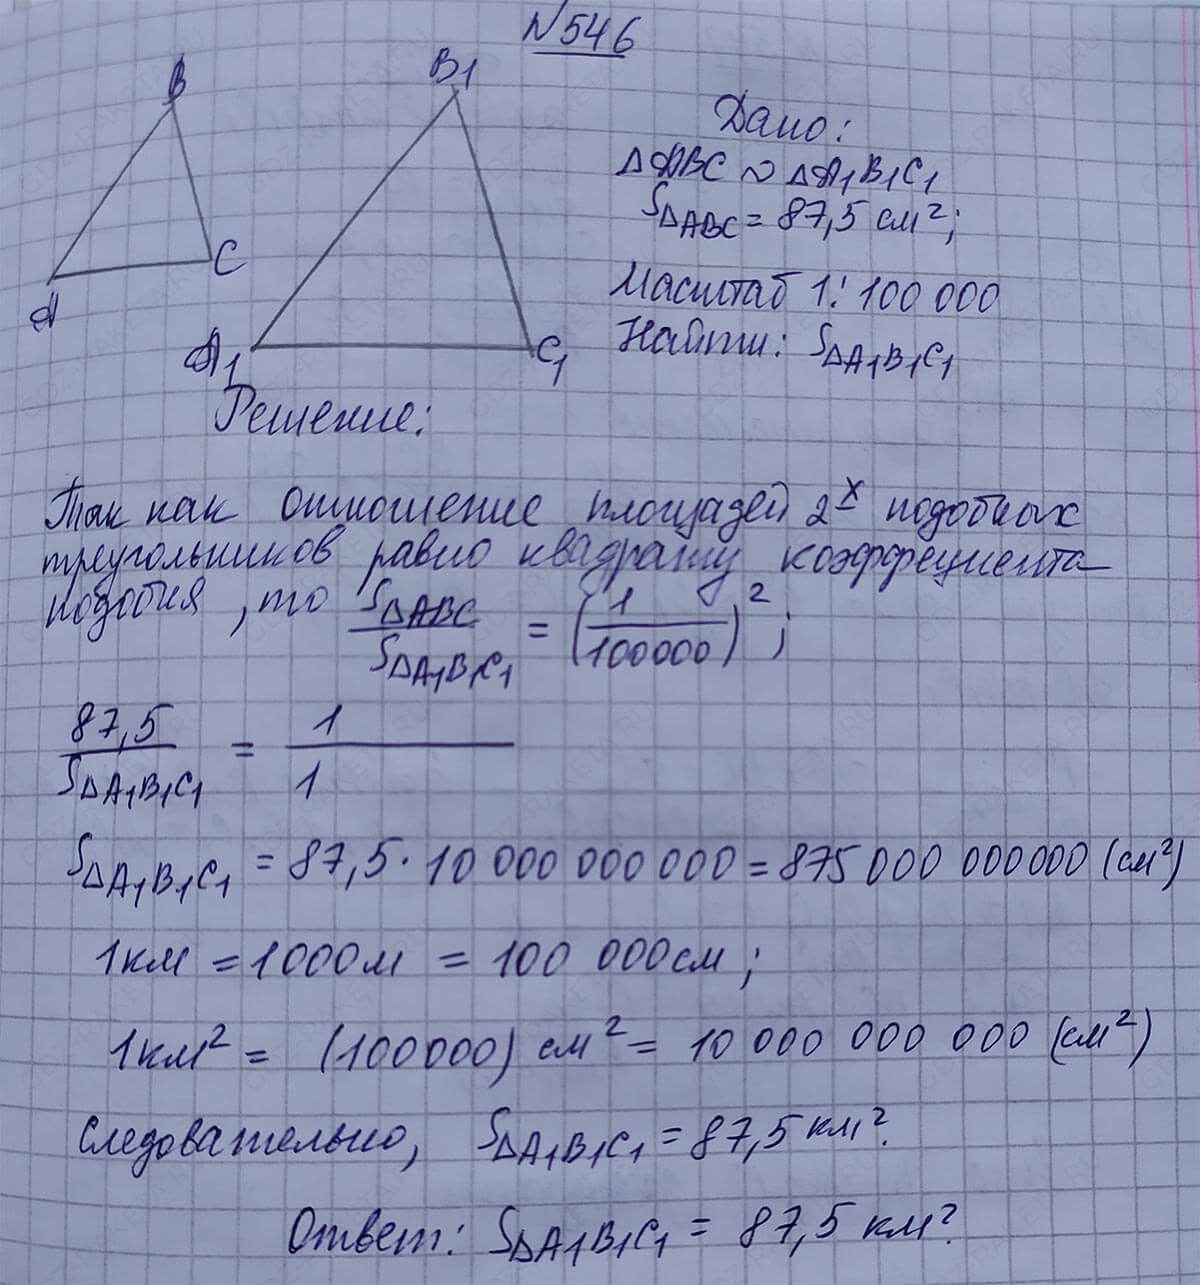 N546
B
B1
Дано:
△ABC ∾ △A1B1C1
S△ABC = 87,5 см²;
C
Масштаб 1:100 000
A
Найти: S△A1B1C1
A1
C1
Решение:
Так как отношение площадей 2х подобных
треугольников равно квадрату коэффециента
подобия, то S△ABC / S△A1B1C1 = (1 / 100000)²;
87,5 / S△A1B1C1 = 1 / 1
S△A1B1C1 = 87,5 · 10 000 000 000 = 875 000 000 000 (см²)
1км = 1000м = 100 000см;
1км² = (100000) см² = 10 000 000 000 (см²)
Следовательно, S△A1B1C1 = 87,5 км².
Ответ: S△A1B1C1 = 87,5 км².